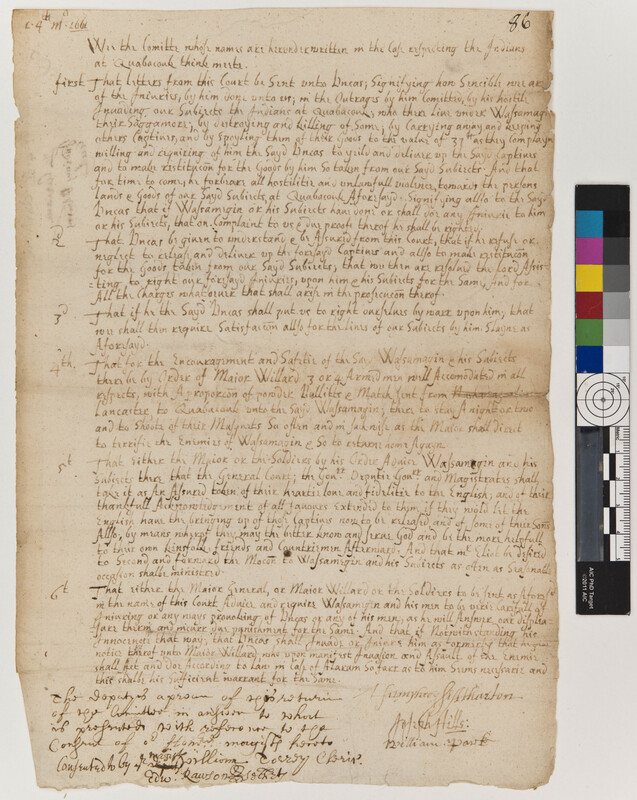 86
Wee the Comitte whose names are hereunder written in the Case respecting the Indians
at Quabacouk think meete.
first That letters from this Court be Sent unto Uncas; Signifying how Sencible wee are
of the Iniuries, by him done unto us; in the Outrages by him Comitted, by his hostile
Invading our Subiects the Indians at Quabacouk, who there live under Wassamagin
their Saggamore, by destroying and killing of Some; by Carrying away and keeping
others Captives, and by spoyling them of their Goods to the value of 37 as they Complayn
willing and requiring of him the Sayd Uncas to yeild and deliver up the Sayd Captives
and to make restitucon for the Goods by him So taken from our Sayd Subiects. And that
for time to come, he forbeare all hostilitie and unlawfull violence, towards the persons
Lands & Goods of our Sayd Subiects, at Quabacouk Aforesayd. Signifying allso to the Sayd
Uncas that if Wassamagin or his Subiects have done or shall doe any Iniurie to him
or his Subiects, that on Complaint to us & due proofe thereof he shall be righted.
2 That Uncas be given to understand & be Assured from this Court, that if he refuse or
neglect to release and deliver up the foresayd Captives and allso to make restitucon
for the Goods taken from our Sayd Subiects, that wee then are resolved the Lord Assis
ting, to right our foresayd Iniuries, upon him & his Subiects for the Same, And for
All the charges whatsoever that shall arise in the prosecucon thereof.
3d That if he the Sayd Uncas shall put us to right ourselves by warr upon him, that
wee shall then require Satisfaction allso for the lives of our Subiects by him Slayne as
Aforesayd.
4th. That for the Encouragement and Safetie of the Sayd Wassamagin & his Subiects
there be by Order of Maior Willard 3 or 4 Armed men well Accomodated in all
respects, with A proporcon of powder, Bulletts & Match Sent from
Lancaster, to Quabacouk unto the Sayd Wassamagin; there to stay A night or two
and to Shoote of their Musquets So often and in such wise as the Maior shall direct
to terrifie the Enimies of Wassamagin & So to returne home Agayn.
5t That either the Maior or the Soldiers by his Order Advise Wassamagin and his
Subiects there that the Generall Court; the Gov Deputie Gov and Magistrates shall
take it as An Assured token of their heartie love and fidelitie to the English, and of their
thankfull Acknowledgement of all favours Extended to them if they would let the
English have the bringing up of those Captives now to be released, and of some of their Sons
Allso, by meanes whereof they may the better know and serve God and be the more helpfull
to their own kinsfolke, friends and Countriemen Afterward. And that mr Eliot be desired
to Second and forward the Mocon to Wassamagin and his Subiects as often as Seasonable
occasion shalbe ministred.
6t That either the Maior Generall, or Maior Willard or the Soldiers to be sent as Aforesd
in the name of this Court, Advise and require Wassamagin and his men to be verie Carefull of
Iniuring or any wayes provoking of Uncas or any of his men, as he will Answer our displea
sure therein and incurr due punishment for the Same. And that if Notwithstanding his
Innocencie that way, that Uncas shall Invade or Iniure him as formerly that he give
notice thereof unto Maior Willard, who upon manifest Invasion and Assault of the Enimie
shall Act and doe According to Law in Case of Alaram So farr as to him Seems necessarie and
this shalbe his Sufficient warrant for the Same.
The deputyes aprove of this returne
of the Comittee in answer to what
is presented with reference to the
Consent of or Honord magists hereto
William Torrey Cleric.
Consented by ye magists
Edw: Rawson Secret
Humphrey Atherton
Joseph Hills:
William Parke